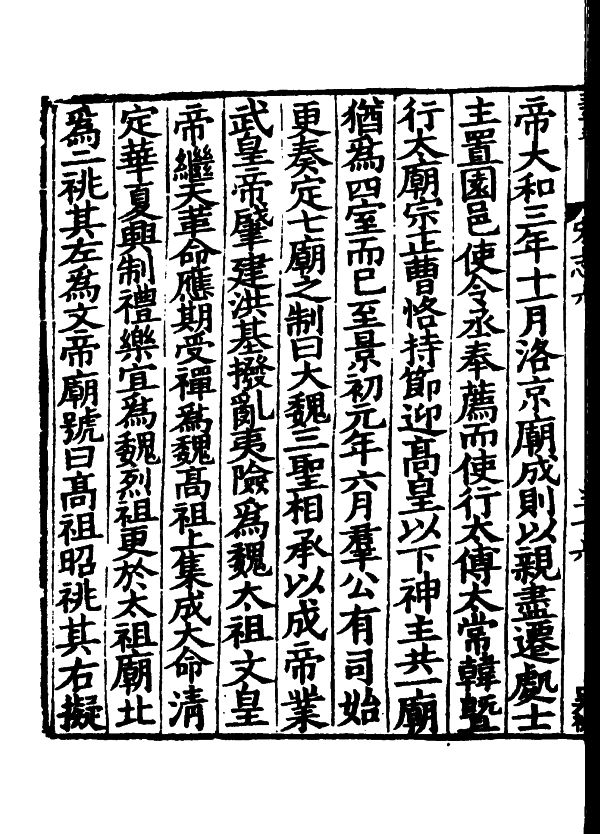 帝太和三年十一月洛京廟成則以親盡遷處士
主置園邑使令丞奉薦而使行太傅太常韓曁
行太廟宗正曹恪持節迎髙皇以下神主共一廟
猶爲四室而已至景初元年六月羣公有司始
更奏定七廟之制曰大魏三聖相承以成帝業
武皇帝肇建洪基撥亂夷險爲魏太祖文皇
帝繼天革命應期受禪爲魏髙祖上集成大命清
定華夏興制禮樂宜爲魏烈祖更於太祖廟北
爲二祧其左爲文帝廟號曰髙祖昭祧其右擬